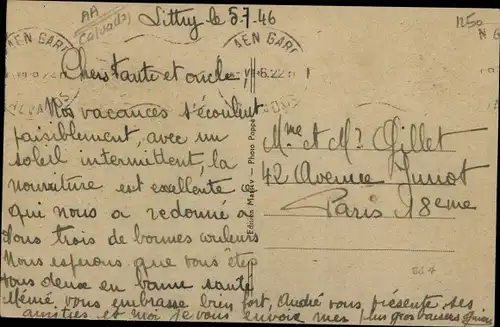 AA
Calvados
Littry le 5.7.46
1250
N G
AEN GARE
AEN GARE
Chers tante et oncle,
CALVADOS
Nos vacances s'écoulent
paisiblement, avec un
soleil intermittent, la
nourriture est excellente
qui nous a redonné à
tous trois de bonnes couleurs
Nous espérons que vous êtes
tous deux en bonne santé
Mémé vous embrasse bien fort, André vous présente ses
amitiés et moi je vous envoie mes plus gros baisers
Mme et Mr Gillet
42 Avenue Junot
Paris 18eme
Photo Poppé